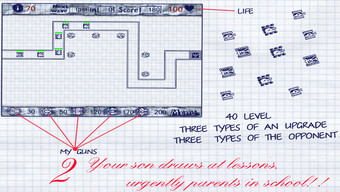 70 Next wave Score: 180 100
LIFE
30 50 120 200
40 LEVEL
THREE TYPES OF AN UPGRADE
THREE TYPES OF THE OPPONENT
MY GUNS
2 Your son draws at lessons,
urgently parents in school!!!